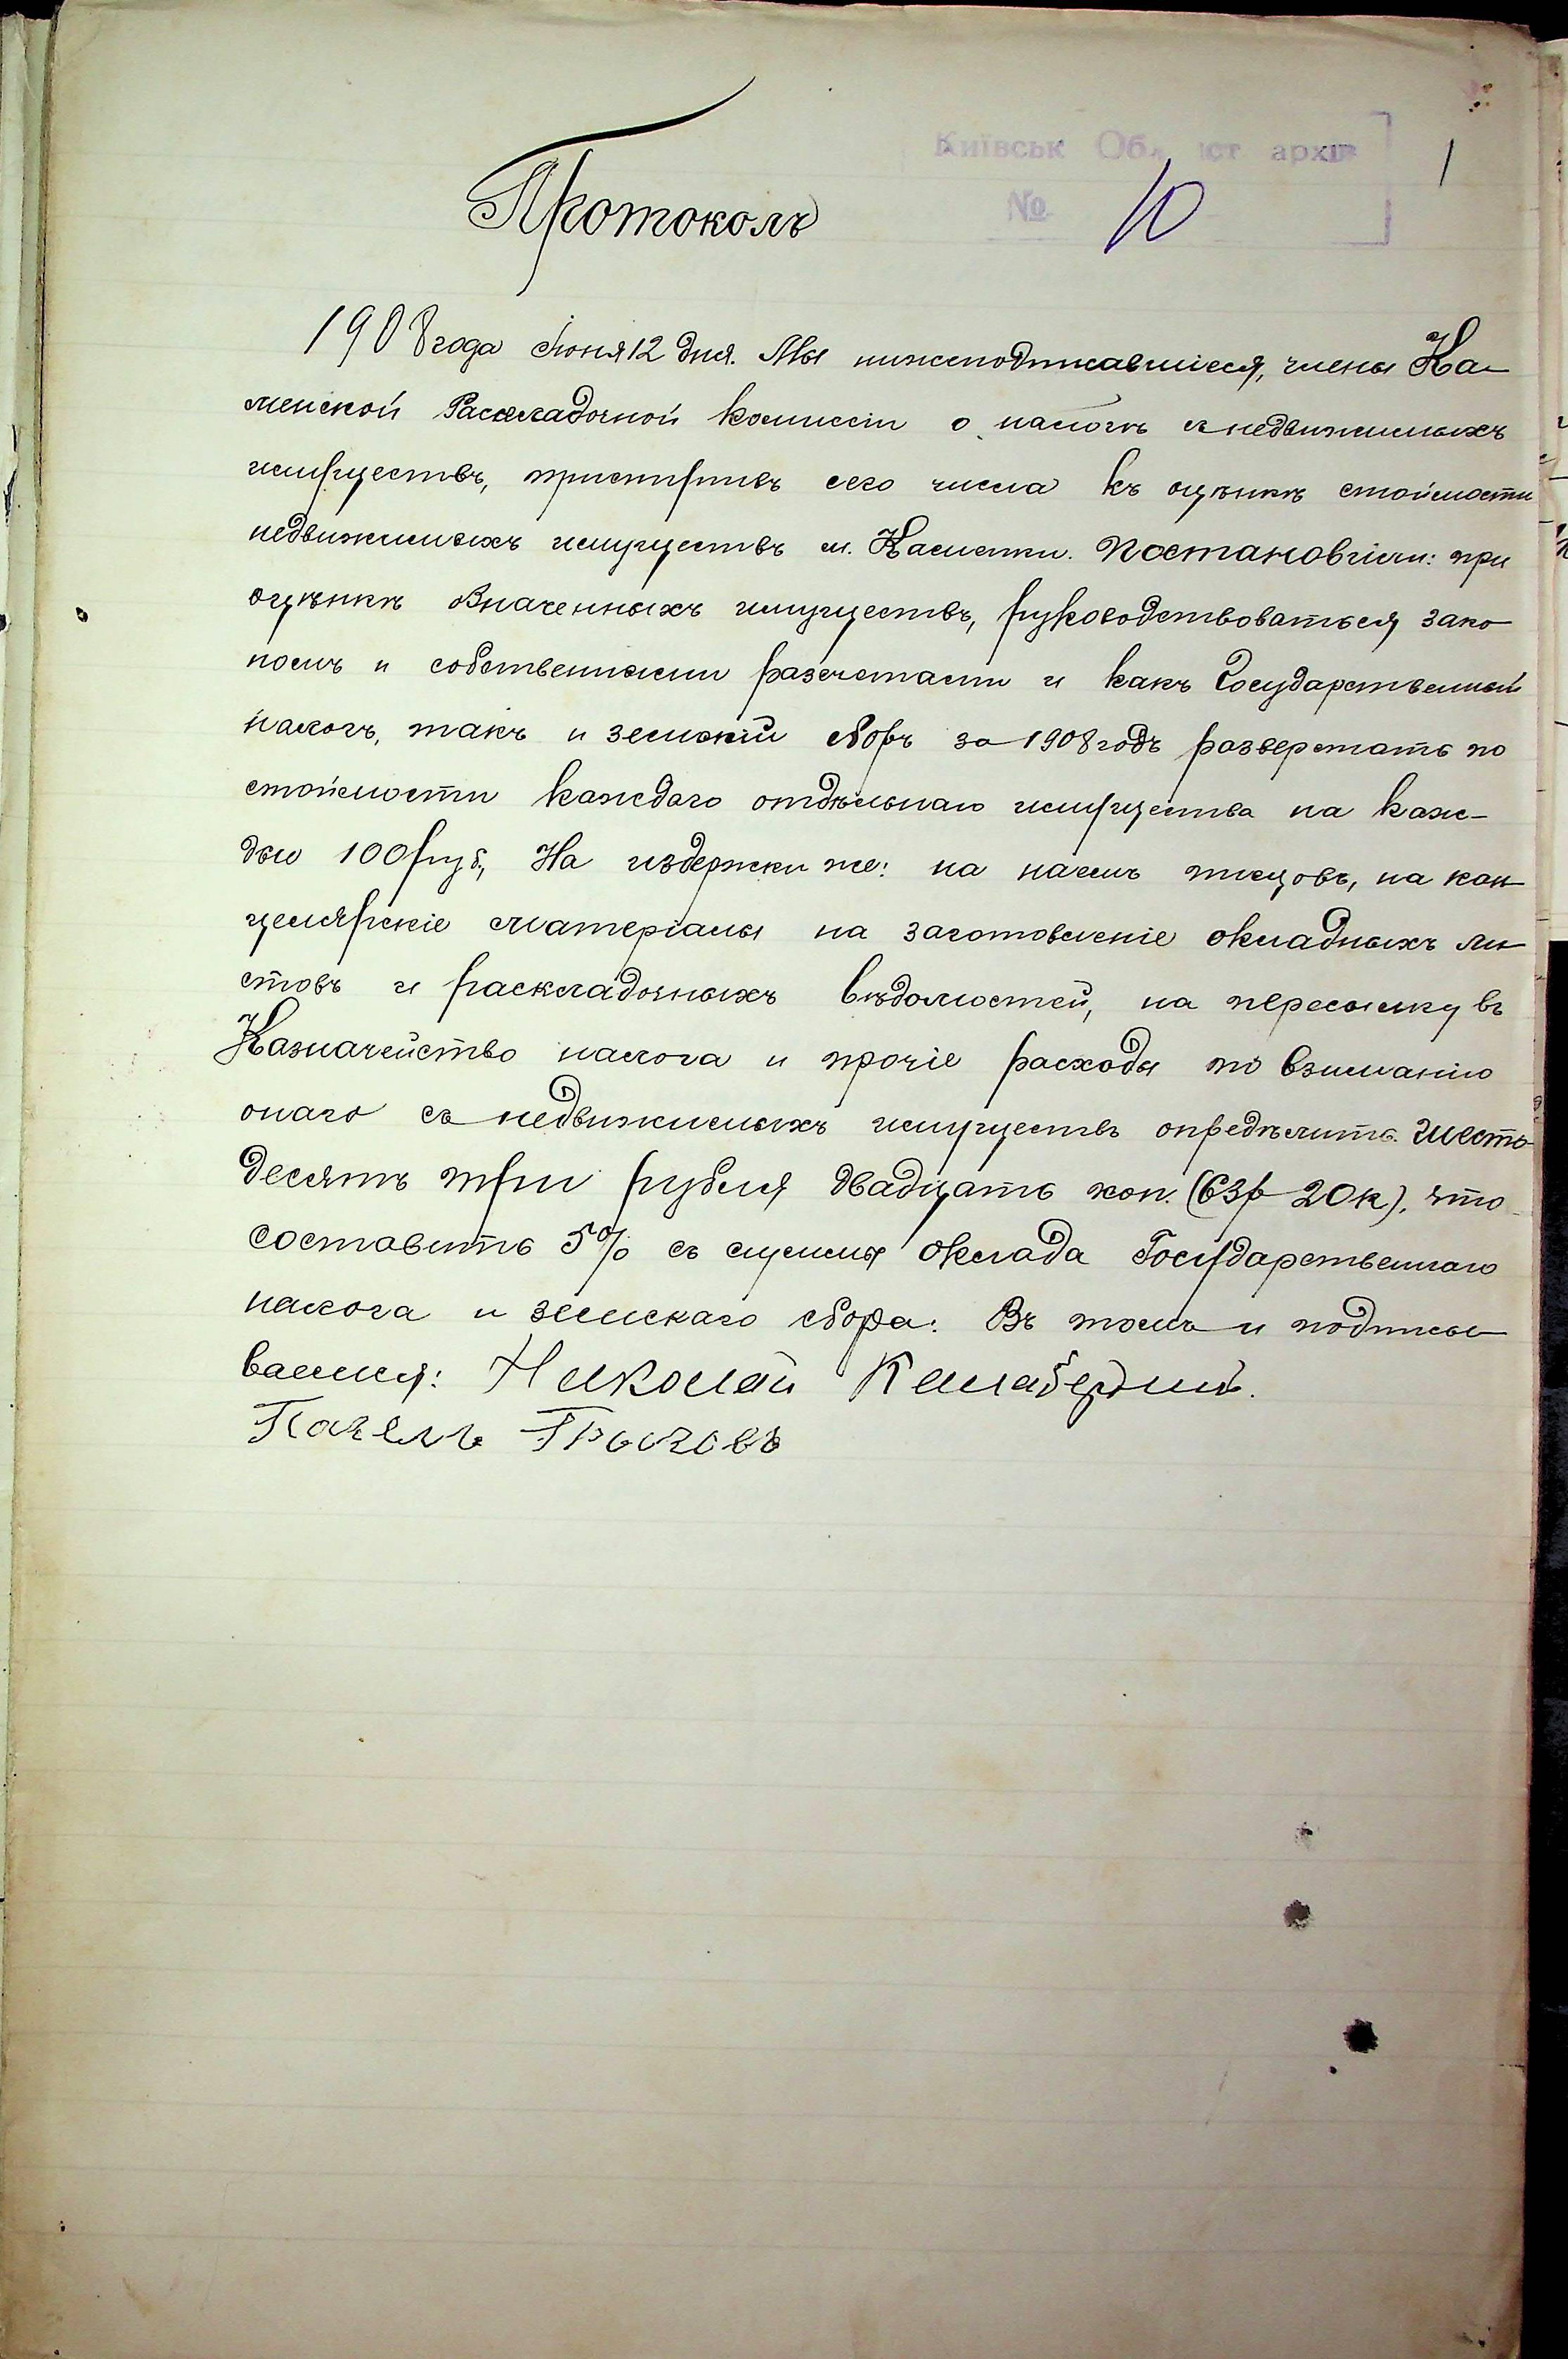 Київськ Обл іст архів
1
№ 10
Протоколъ
1908 года Іюня 12 дня. Мы нижеподписавшіеся, члены Ка-
менской Раскладочной комиссіи о налогѣ с недвижимыхъ
имуществъ, приступивъ сего числа къ оцѣнкѣ стоимости
недвижимыхъ имуществъ м. Каменки. Постановили: при
оцѣнкѣ означенныхъ имуществъ, руководствоваться зако
номъ и собственными разсчетами и какъ Государственный
налогъ, такъ и земскій сборъ за 1908 годъ разверстать по
стоимости каждаго отдѣльнаго имущества на каж-
дые 100 руб, На издержки же: на наемъ писцовъ, на кан
целярскіе матеріалы на заготовленіе окладныхъ ли
стовъ и раскладочныхъ вѣдомостей, на пересылку въ
Казначейство налога и прочіе расходы по взиманію
онаго съ недвижимыхъ имуществъ опредѣлить шесть
десятъ три рубля двадцать коп. (63р 20к), что
составитъ 5% съ суммы оклада Государственнаго
налога и земскаго сбора: Въ томъ и подписы
ваемся: Николай